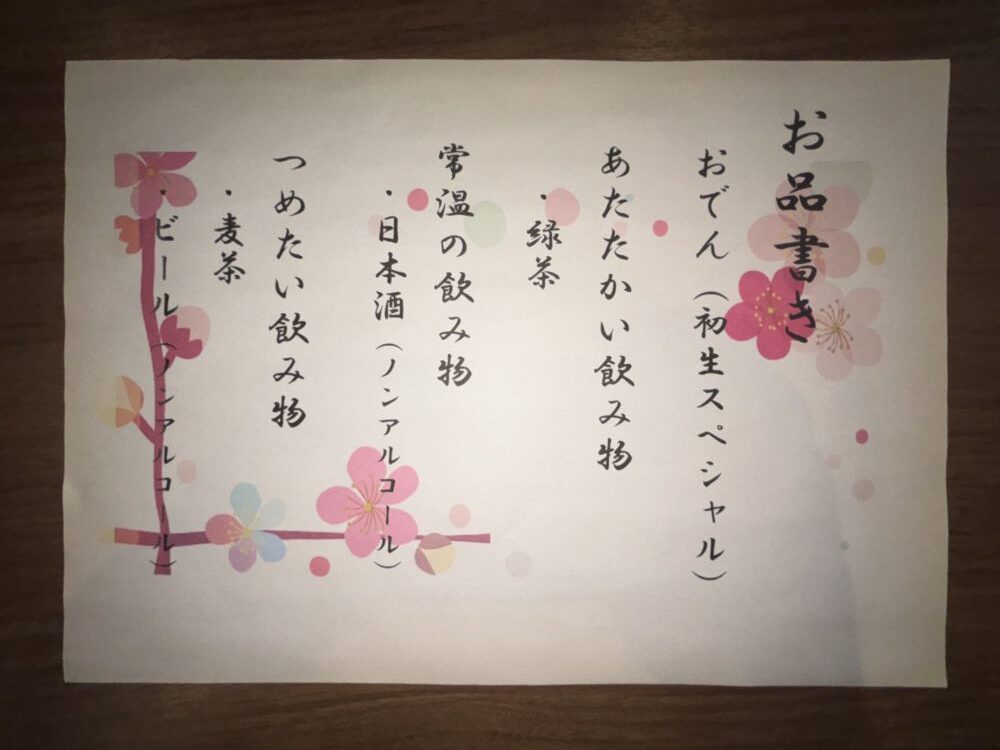 お品書き
おでん（初生スペシャル）
あたたかい飲み物
・緑茶
常温の飲み物
・日本酒（ノンアルコール）
つめたい飲み物
・麦茶
・ビール（ノンアルコール）